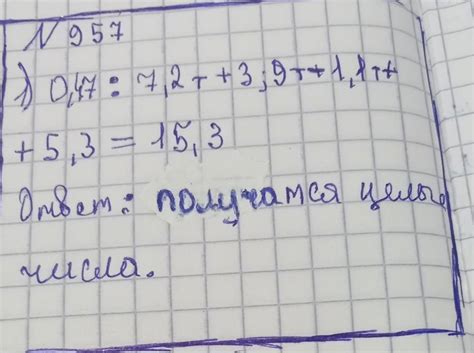 N 957
1) 0,47 : 7,2т + 3,9т + 1,1т +
+ 5,3 = 15,3
Ответ: получатся целые
числа.